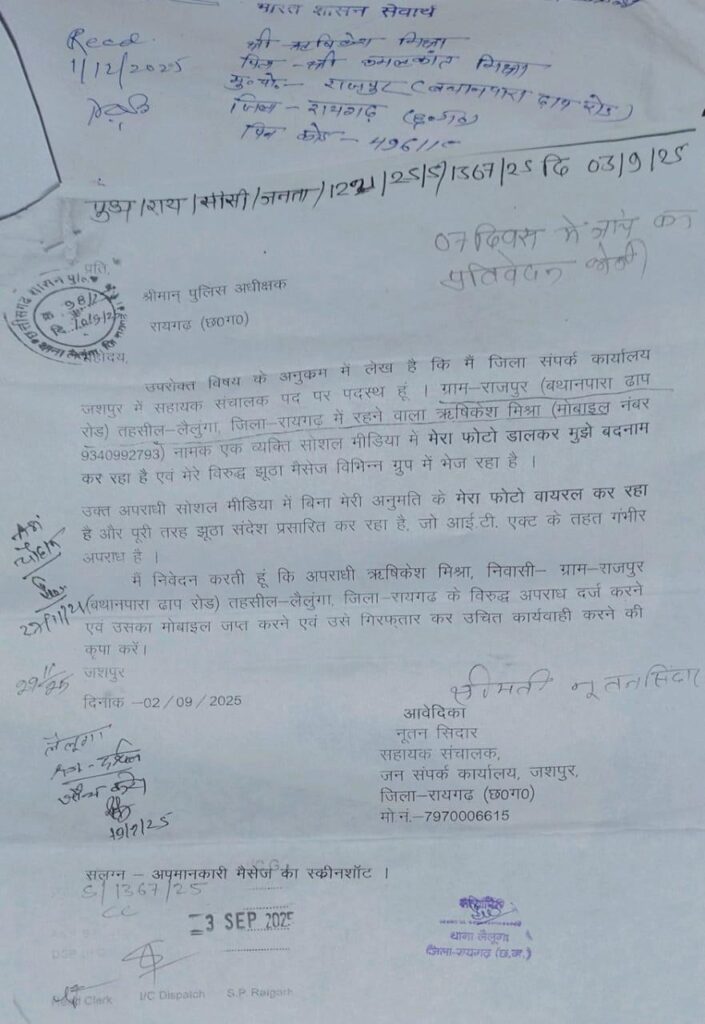 भारत शासन सेवार्थ
Recd.
1/12/2025
श्री ऋषिकेश मिश्रा
पिता - श्री कमलकांत मिश्रा
मु.पो.- राजपुर (बथानपारा ढाप रोड)
जिला - रायगढ़ (छ०ग०)
पिन कोड - 49611
/25/S/1367/25 दि 03/9/25
07 दिवस में जांच कर
प्रतिवेदन
प्रति,
श्रीमान् पुलिस अधीक्षक
रायगढ़ (छ०ग०)
महोदय,
उपरोक्त विषय के अनुकम में लेख है कि मैं जिला संपर्क कार्यालय
जशपुर में सहायक संचालक पद पर पदस्थ हूं । ग्राम-राजपुर (बथानपारा ढाप
रोड) तहसील-लैलुंगा, जिला-रायगढ़ में रहने वाला ऋषिकेश मिश्रा (मोबाइल नंबर
9340992793) नामक एक व्यक्ति सोशल मीडिया में मेरा फोटो डालकर मुझे बदनाम
कर रहा है एवं मेरे विरुद्ध झूठा मैसेज विभिन्न ग्रुप में भेज रहा है ।
उक्त अपराधी सोशल मीडिया में बिना मेरी अनुमति के मेरा फोटो वायरल कर रहा
है और पूरी तरह झूठा संदेश प्रसारित कर रहा है, जो आई.टी. एक्ट के तहत गंभीर
अपराध है ।
मैं निवेदन करती हूं कि अपराधी ऋषिकेश मिश्रा, निवासी– ग्राम-राजपुर
(बथानपारा ढाप रोड) तहसील-लैलुंगा, जिला-रायगढ़ के विरुद्ध अपराध दर्ज करने
एवं उसका मोबाइल जप्त करने एवं उसे गिरफ्तार कर उचित कार्यवाही करने की
कृपा करें।
जशपुर
दिनांक –02/09/2025
श्रीमती नूतन सिदार
आवेदिका
नूतन सिदार
सहायक संचालक,
जन संपर्क कार्यालय, जशपुर,
जिला-रायगढ़ (छ०ग०)
मो नं.–7970006615
लैलूंगा
सलग्न – अपमानकारी मैसेज का स्क्रीनशॉट ।
S/1367/25
CC
3 SEP 2025
थाना लैलूंगा
जिला-रायगढ़ (छ.ग.)
Head Clerk I/C Dispatch S.P. Raigarh